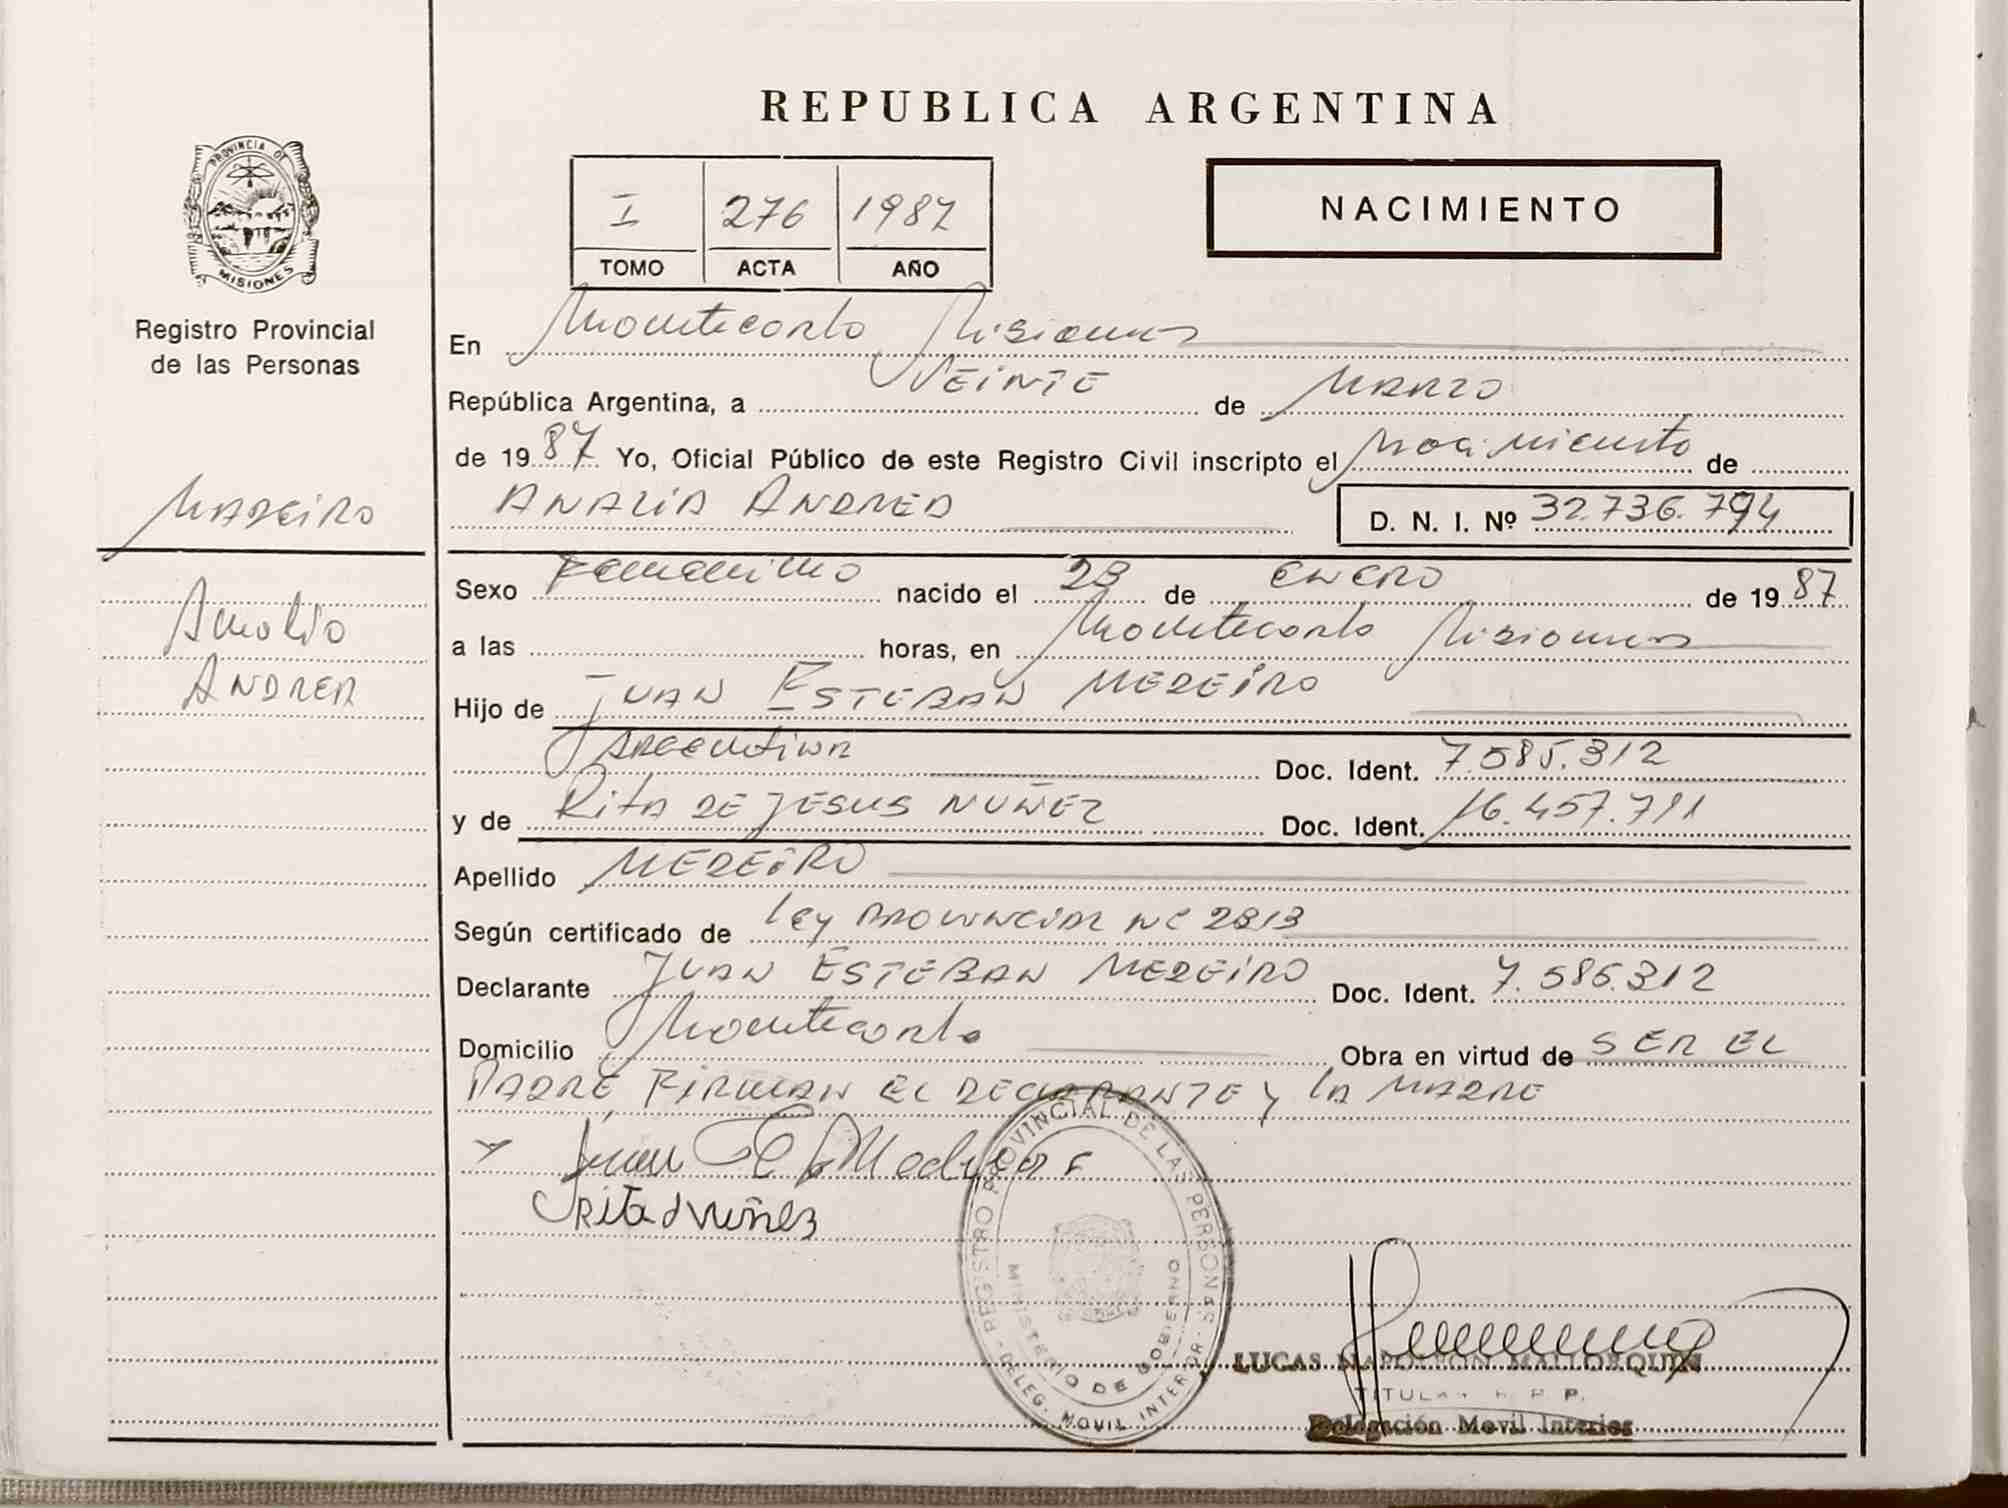 REPUBLICA ARGENTINA
PROVINCIA DE
MISIONES
Registro Provincial
de las Personas
I 276 1987
TOMO ACTA AÑO
NACIMIENTO
En Montecarlo Misiones
República Argentina, a VEINTE de MARZO
de 1987 Yo, Oficial Público de este Registro Civil inscripto el Nacimiento de
ANALIA ANDREA
D. N. I. Nº 32.736.794
MEDEIRO
Analia
ANDREA
Sexo Femenino nacido el 28 de ENERO de 1987
a las horas, en Montecarlo Misiones
Hijo de JUAN ESTEBAN MEDEIRO
Argentina Doc. Ident. 7.585.312
y de Rita DE JESUS NUÑEZ Doc. Ident. 16.457.791
Apellido MEDEIRO
Según certificado de Ley PROVINCIAL Nº 2813
Declarante JUAN ESTEBAN MEDEIRO Doc. Ident. 7.585.312
Domicilio Montecarlo Obra en virtud de SER EL
PADRE, FIRMAN EL DECLARANTE Y LA MADRE
Juan E
Rita Nuñez
REGISTRO PROVINCIAL DE LAS PERSONAS
MINISTERIO DE GOBIERNO
DELEG. MOVIL INTERIOR
LUCAS NAPOLEON MALLORQUIN
TITULAR R. P. P.
Delegación Movil Interior